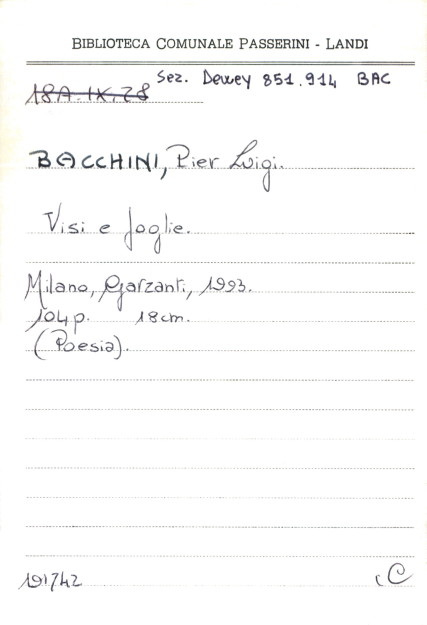 BIBLIOTECA COMUNALE PASSERINI - LANDI
Sez. Dewey 851.914 BAC
18A.IX.28
BACCHINI, Pier Luigi.
Visi e foglie.
Milano, Garzanti, 1993.
104 p. 18 cm.
(Poesia).
191742
C